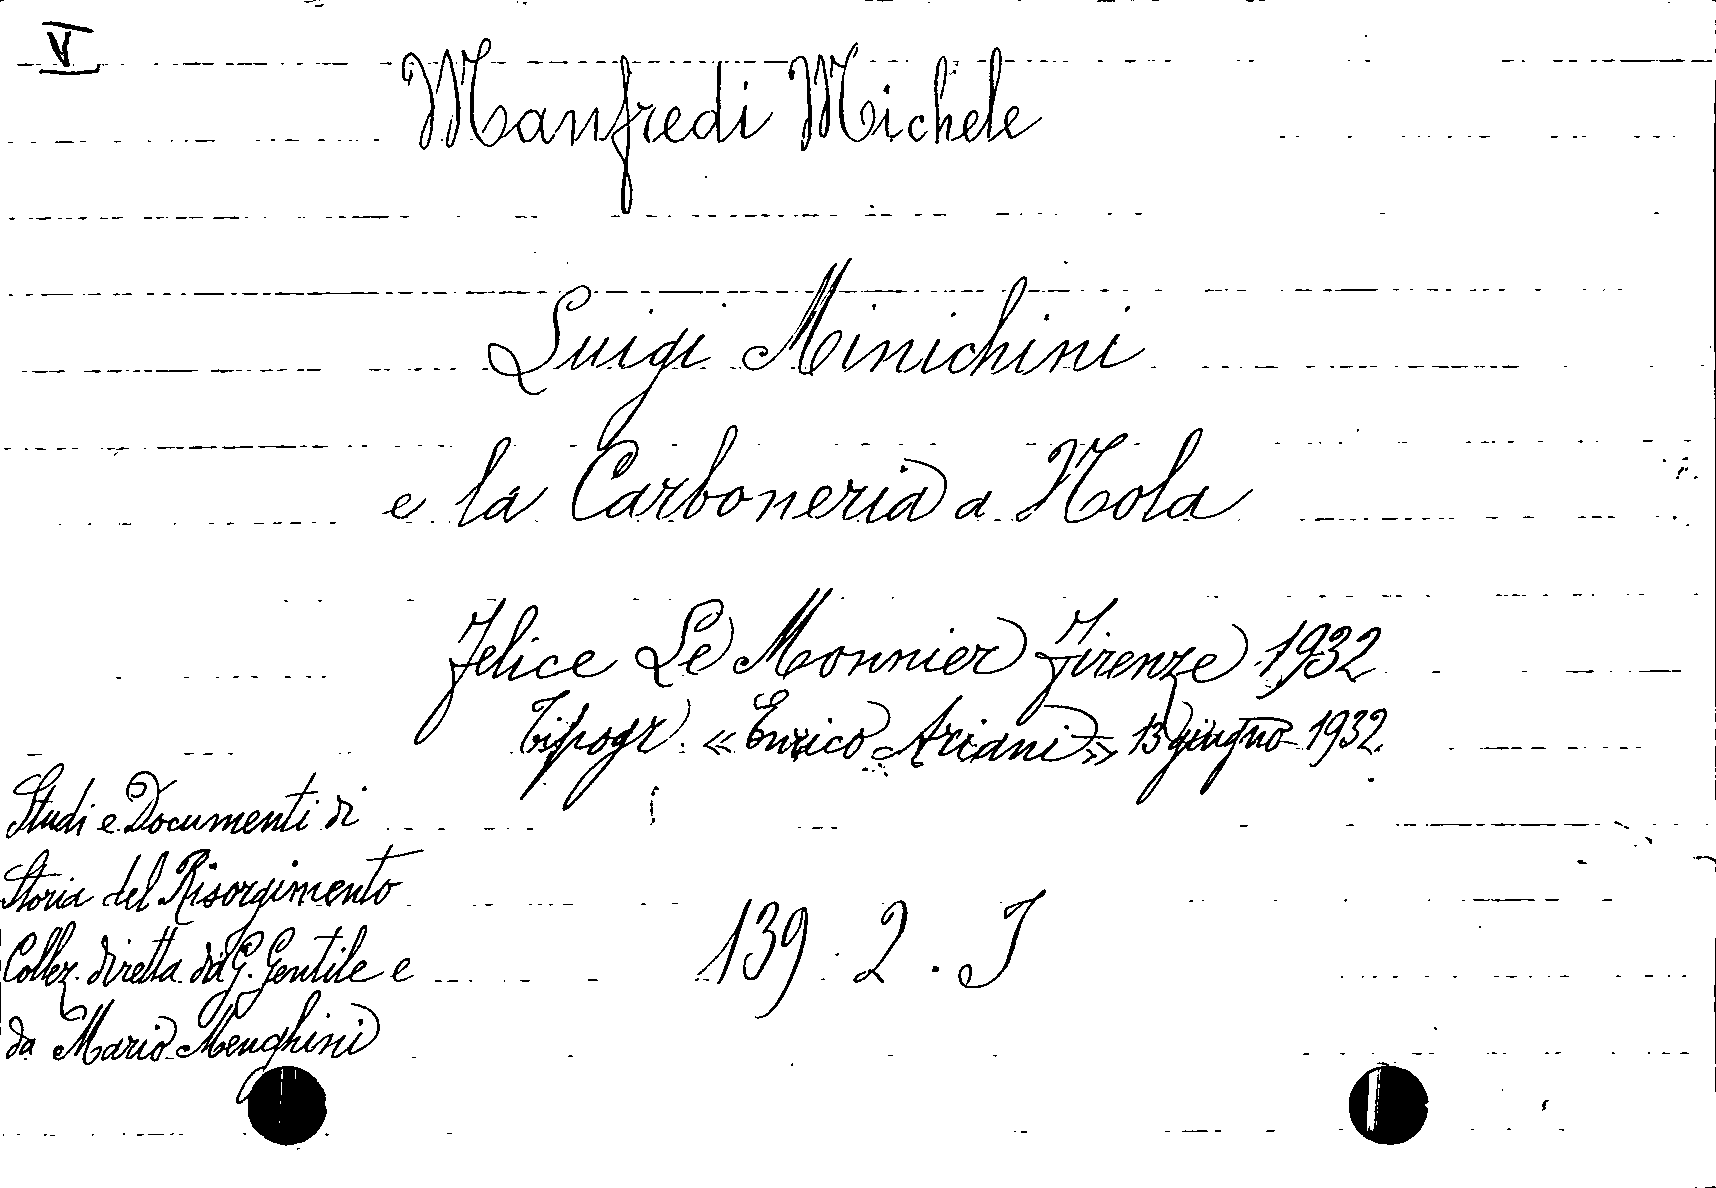 V
Manfredi Michele
Luigi Minichini
e la Carboneria a Nola
Felice Le Monnier Firenze 1932
Tipogr. « Enrico Ariani » 13 giugno 1932.
Studi e Documenti di
Storia del Risorgimento
Collez. diretta da G. Gentile e
da Mario Menghini
139. 2. I